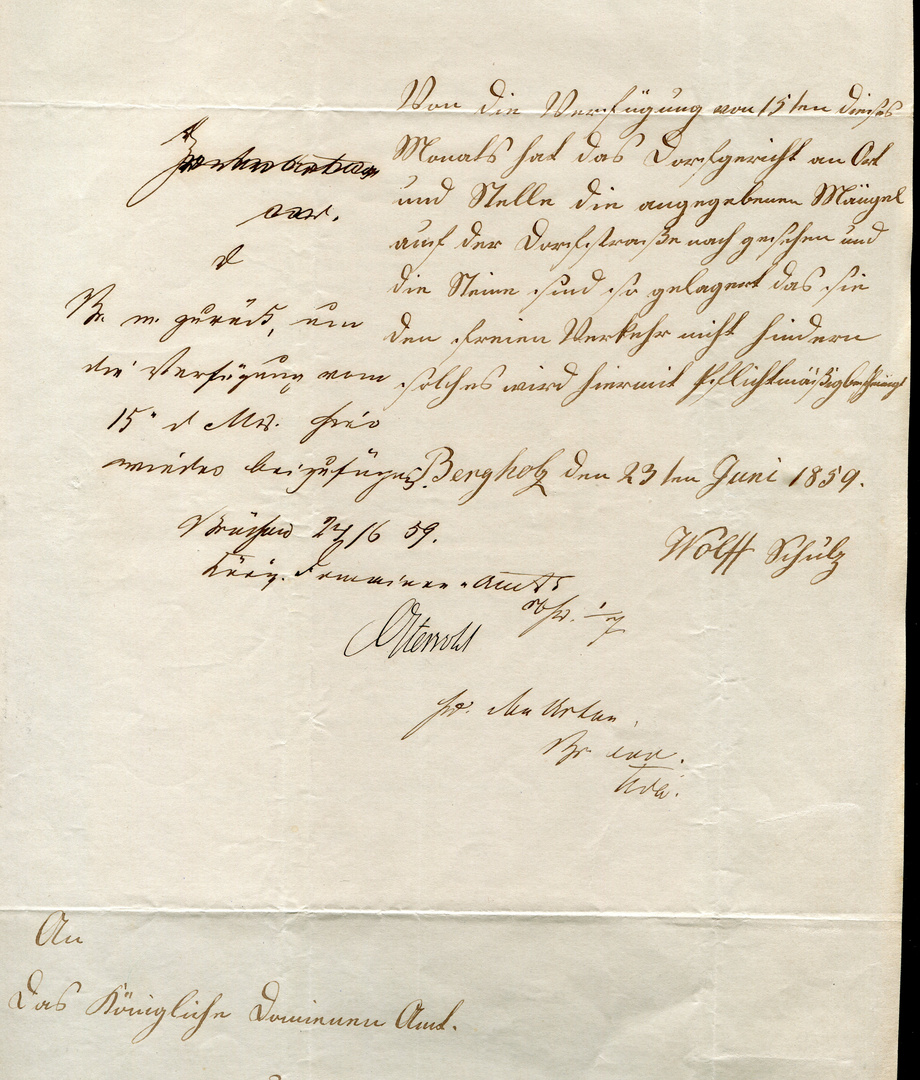 Von die Verfügung von 15ten dieses
Monats hat das Dorfgericht an Ort
und Stelle die angegebenen Mängel
auf der Dorfstraße nach gesehen und
die Steine sind so gelagert das sie
den freien Verkehr nicht hindern
solches wird hiermit Pflichtmäßig bescheinigt
Bergholz den 23ten Juni 1859.
Wolff Schulz
Br. m. zurück, um
die Verfügung vom
15t d Mts. hier
wieder beizufügen.
Brüssow 27/6 59.
Königl. Domainen-Amt
zu den Akten.
An
Das Königliche Domienen Amt.